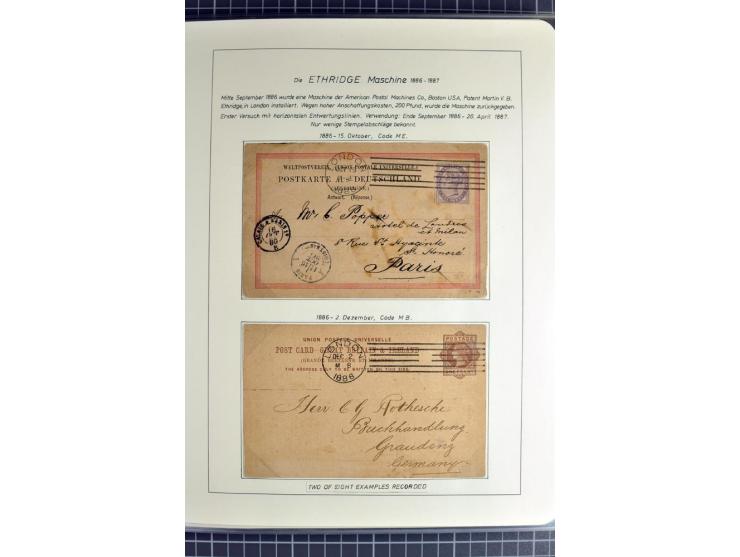 Die ETHRIDGE Maschine 1886-1887
Mitte September 1886 wurde eine Maschine der American Postal Machines Co., Boston USA, Patent Martin V. B.
Ethridge, in London installiert. Wegen hoher Anschaffungskosten, 200 Pfund, wurde die Maschine zurückgegeben.
Erster Versuch mit horizontalen Entwertungslinien. Verwendung: Ende September 1886 - 26. April 1887.
Nur wenige Stempelabschläge bekannt.
1886 - 15. Oktober, Code M E.
WELTPOSTVEREIN. UNION POSTALE UNIVERSELLE.
POSTKARTE AUS DEUTSCHLAND.
Antwort. (Réponse.)
LONDON
1886
Mr. C. Poppe
Hotel de Londres
et Milan
8 Rue St Hyacinte
St. Honoré
Paris
1886 - 2. Dezember, Code M B.
UNION POSTALE UNIVERSELLE
POST CARD - GREAT BRITAIN & IRELAND
(GRANDE BRETAGNE ET IRLANDE)
THE ADDRESS ONLY TO BE WRITTEN ON THIS SIDE.
POSTAGE
LONDON
DEC 2
M B
1886
Herr C G Röthesche
Buchhandlung
Graudenz
Germany
TWO OF EIGHT EXAMPLES RECORDED